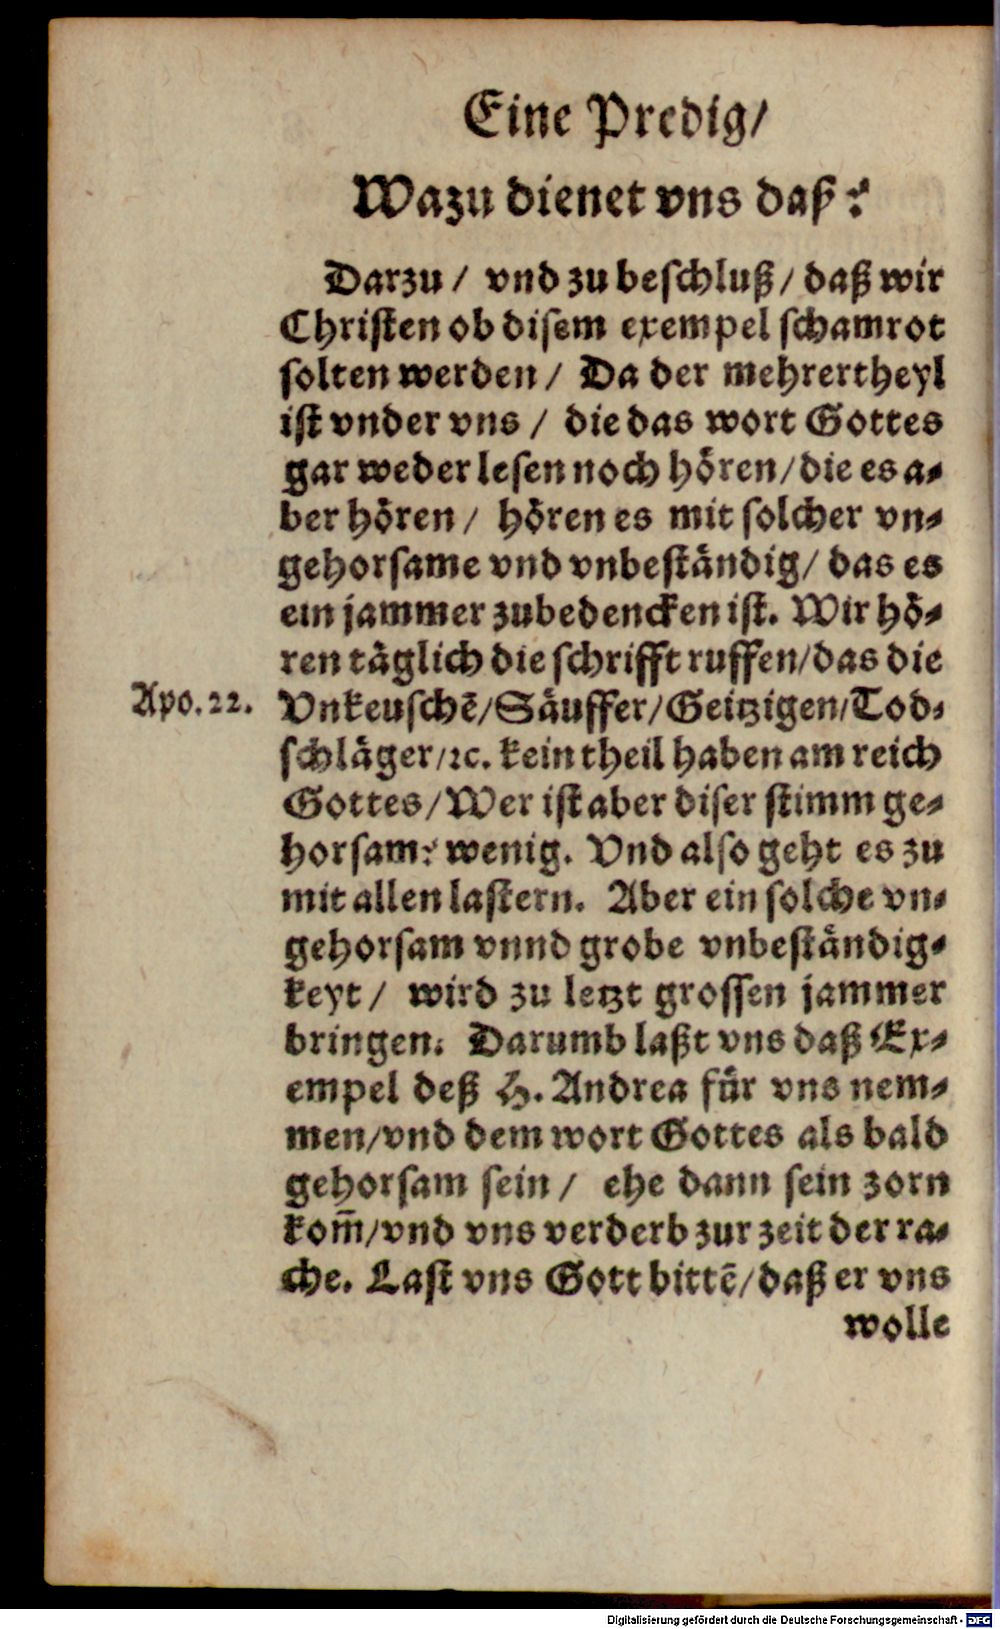 Eine Predig/
Wazu dienet vns daß?
Darzu / vnd zu beschluß / daß wir
Christen ob disem exempel schamrot
solten werden / Da der mehrertheyl
ist vnder vns / die das wort Gottes
gar weder lesen noch hören/die es a⸗
ber hören / hören es mit solcher vn⸗
gehorsame vnd vnbeständig/ das es
ein jammer zubedencken ist. Wir hö⸗
ren täglich die schrifft ruffen/das die
Apo. 22. Vnkeuschē/Säuffer/Geitzigen/Tod⸗
schläger/ꝛc. kein theil haben am reich
Gottes/Wer ist aber diser stimm ge⸗
horsam? wenig. Vnd also geht es zu
mit allen lastern. Aber ein solche vn⸗
gehorsam vnnd grobe vnbeständig⸗
keyt / wird zu letzt grossen jammer
bringen. Darumb laßt vns daß Ex⸗
empel deß H. Andrea für vns nem⸗
men/vnd dem wort Gottes als bald
gehorsam sein / ehe dann sein zorn
kom̄/vnd vns verderb zur zeit der ra⸗
che. Last vns Gott bittē/daß er vns
wolle
Digitalisierung gefördert durch die Deutsche Forschungsgemeinschaft - DFG